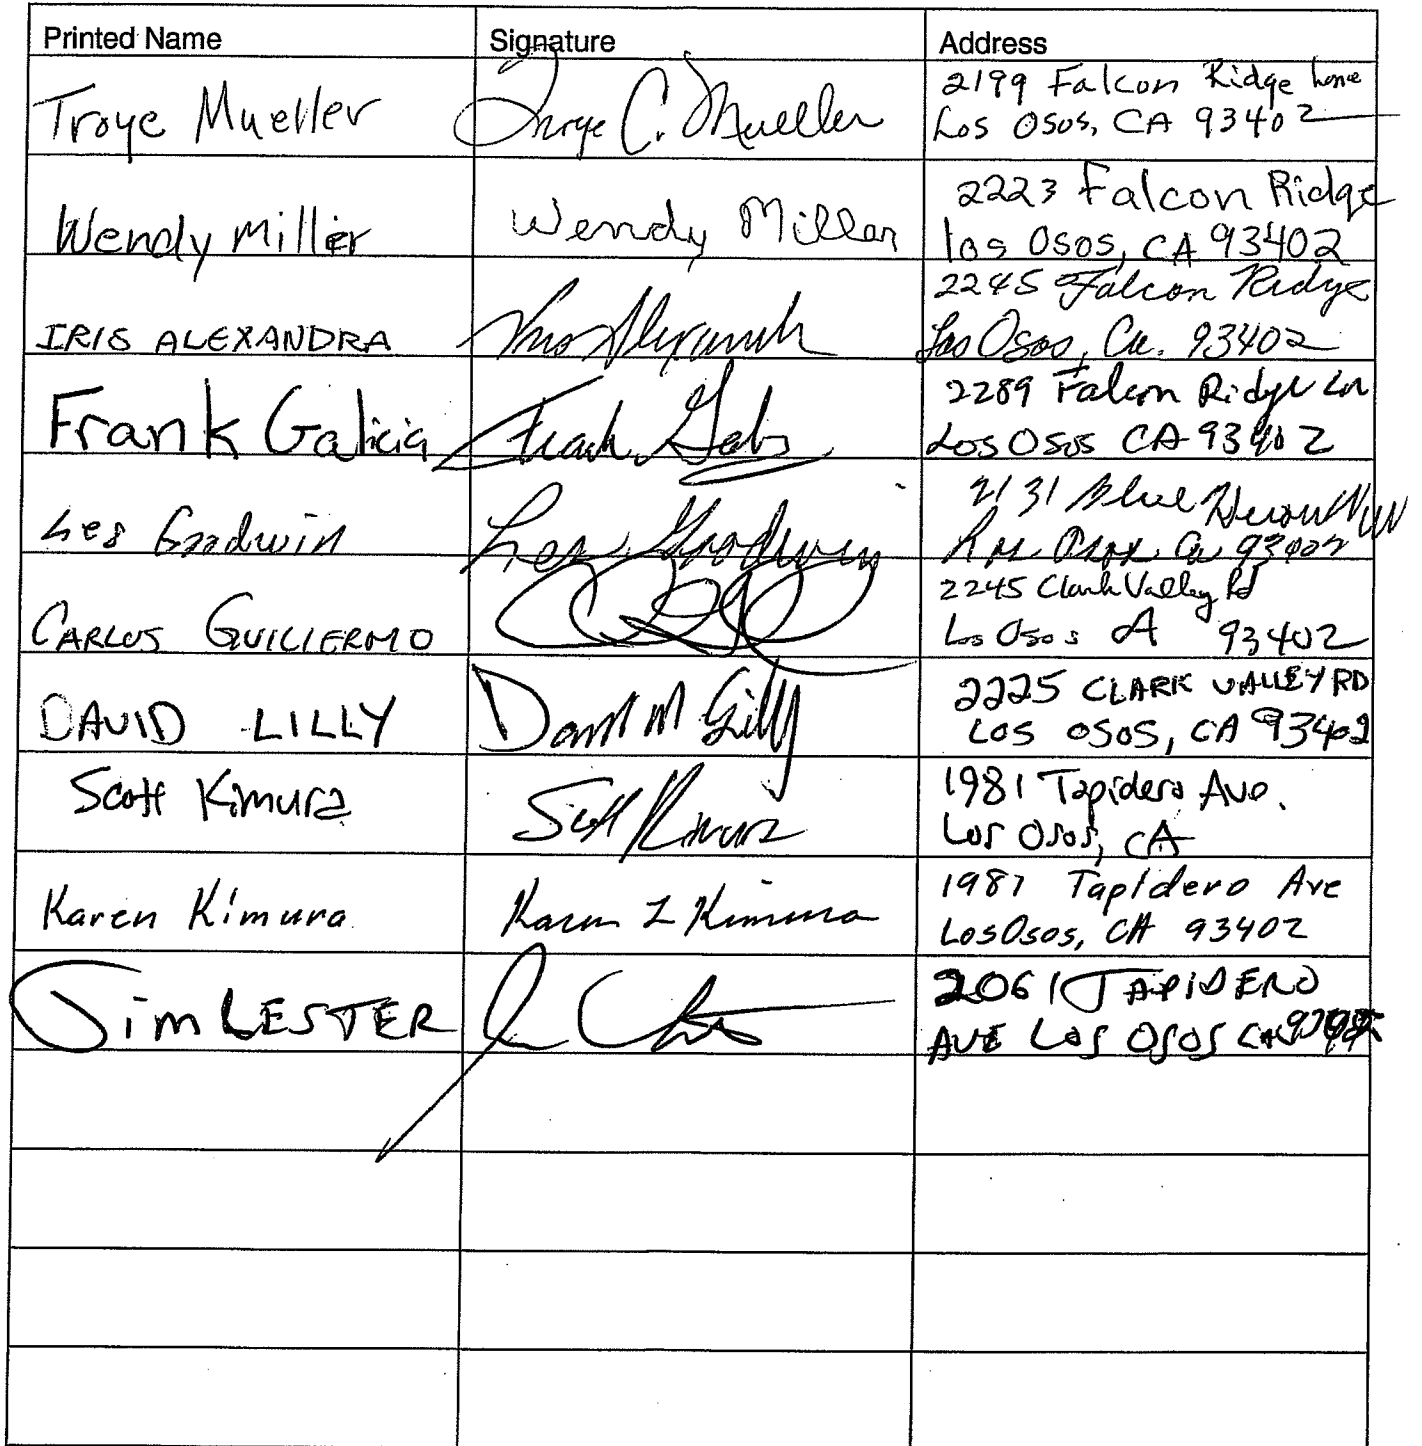 Printed Name Signature Address
Troye Mueller Troye C. Mueller 2199 Falcon Ridge Lane
Los Osos, CA 93402
Wendy Miller Wendy Miller 2223 Falcon Ridge
Los Osos, CA 93402
IRIS ALEXANDRA 2245 Falcon Ridge
Los Osos, Ca. 93402
Frank Galicia Frank 2289 Falcon Ridge Ln
Los Osos CA 93402
Les Goodwin Les Goodwin 2131 Blue Heron
Los Osos Ca 93402
CARLOS GUILLERMO 2245 Clark Valley Rd
Los Osos CA 93402
DAVID LILLY David M Lilly 2225 CLARK VALLEY RD
LOS OSOS, CA 93402
Scott Kimura Scott Kimura 1981 Tapidero Ave.
Los Osos, CA
Karen Kimura Karen L Kimura 1981 Tapidero Ave
Los Osos, CA 93402
Jim LESTER 2061 TAPIDERO
AVE LOS OSOS CA